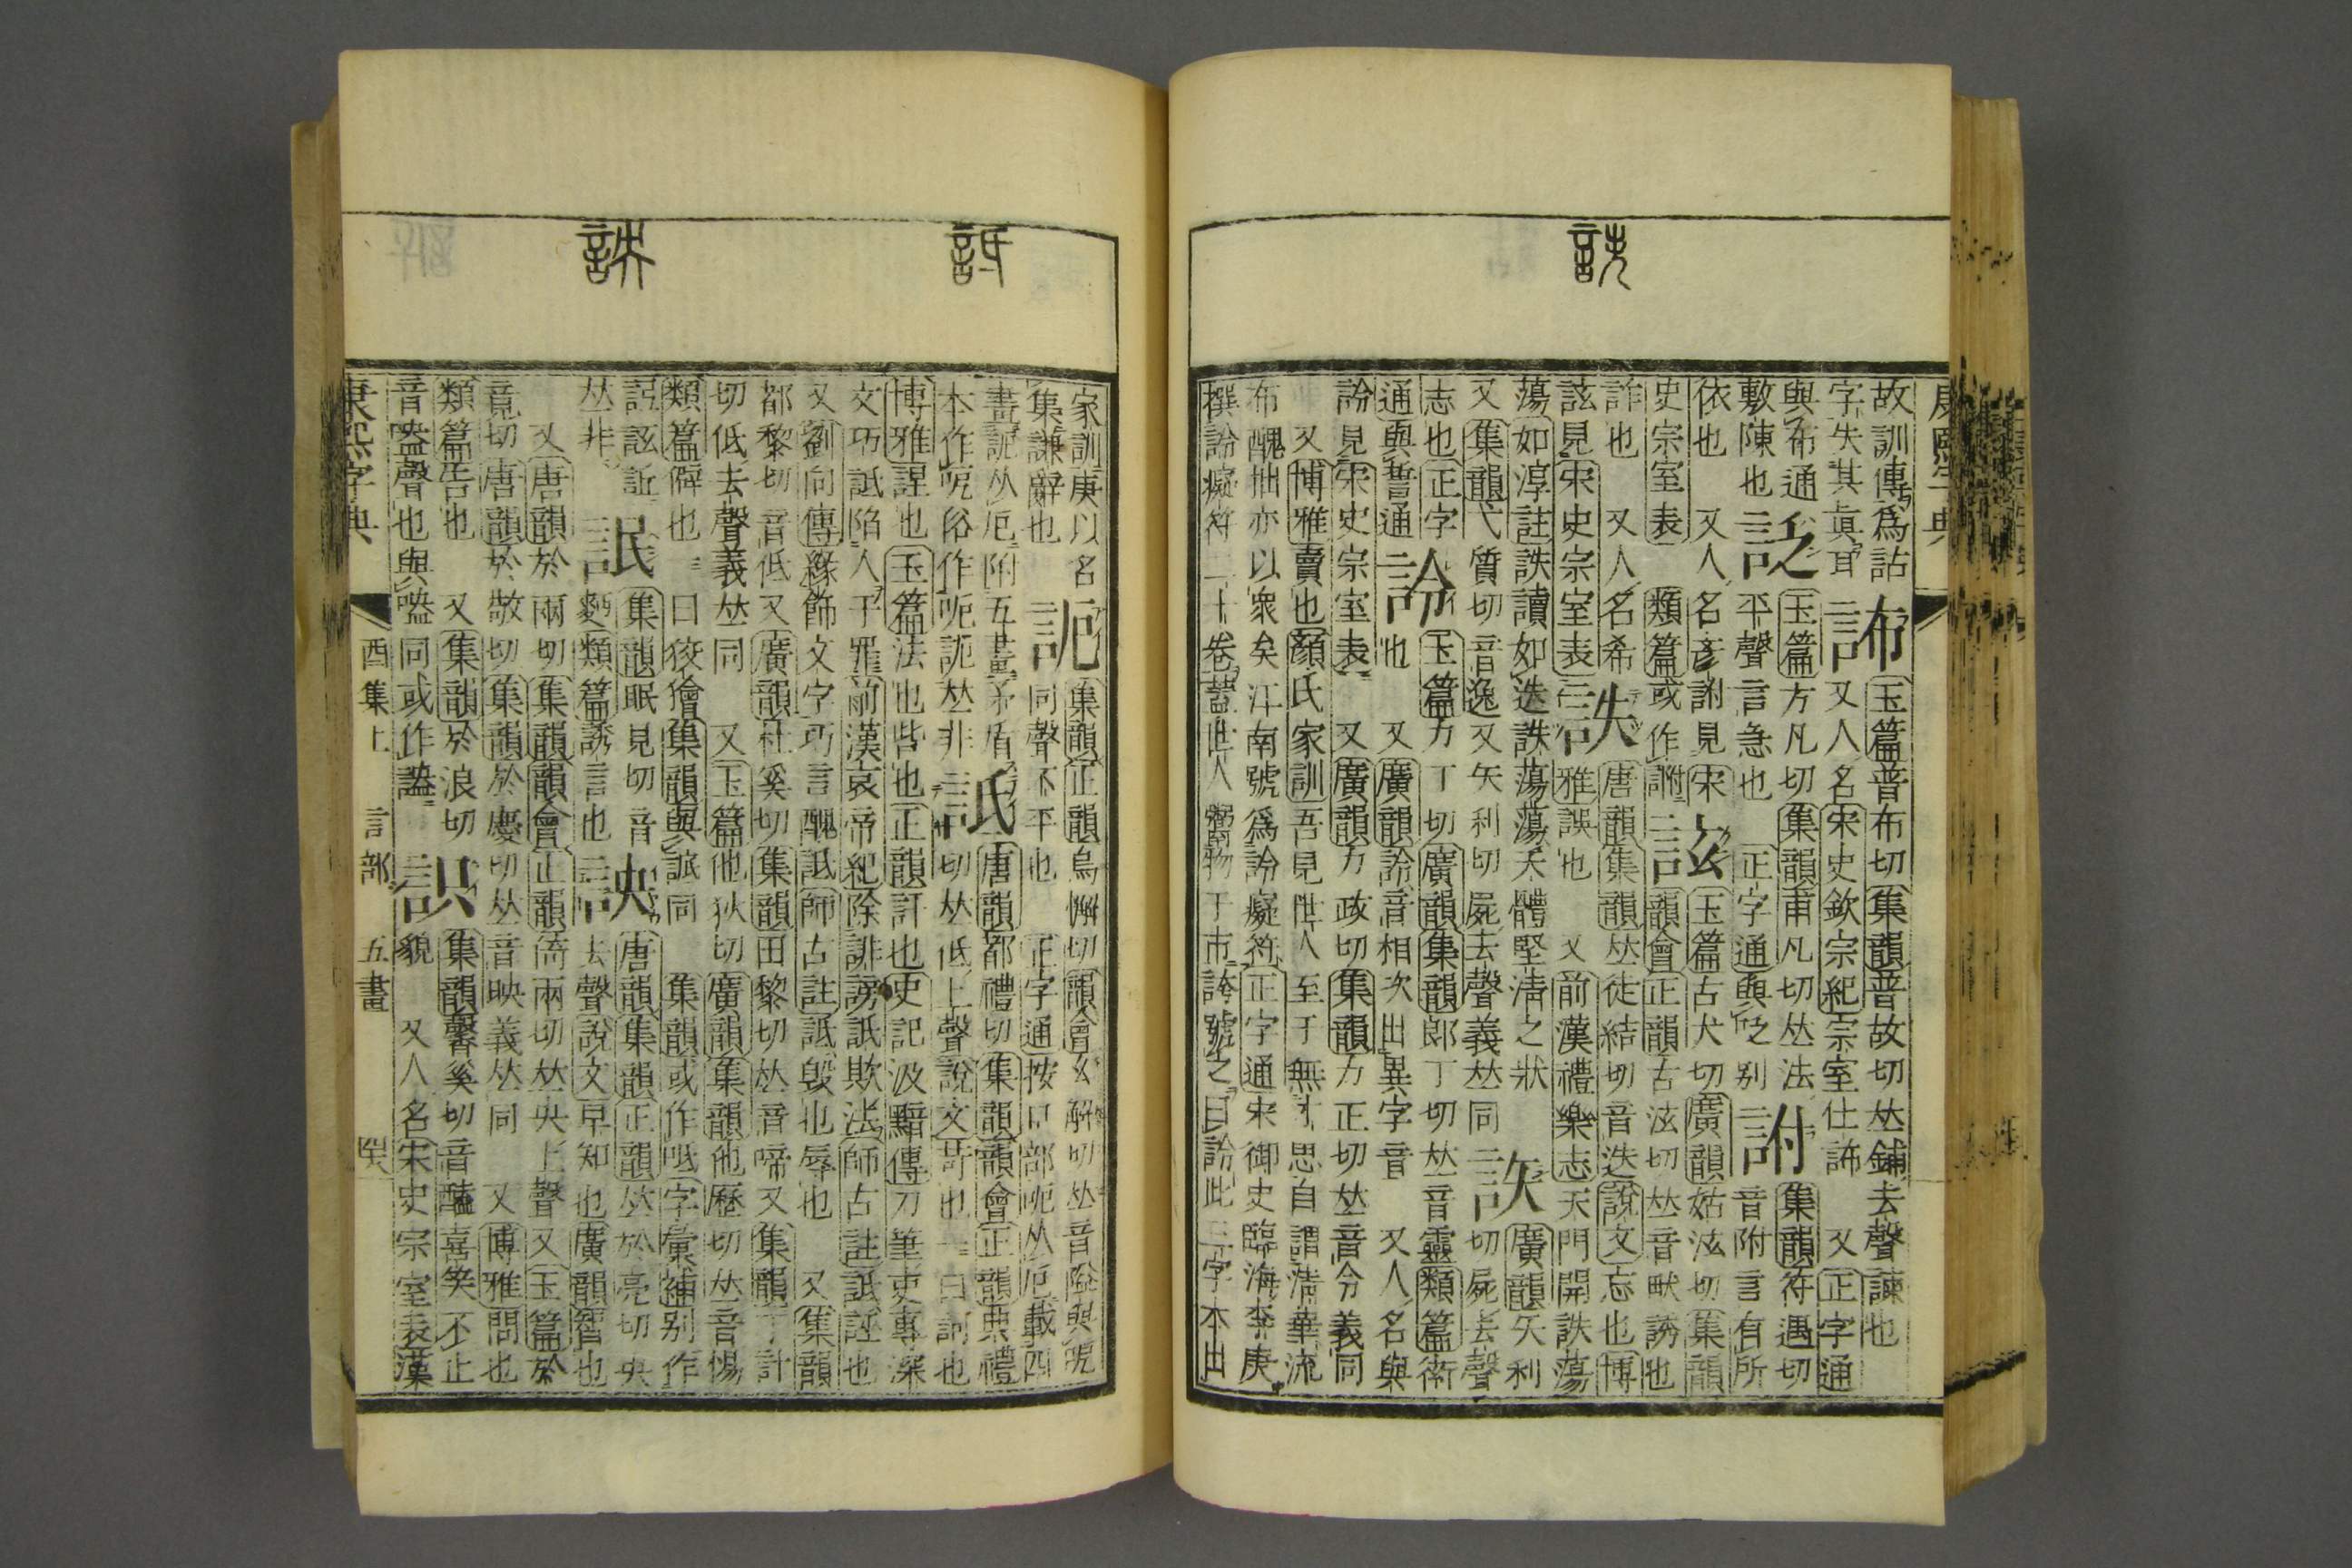 康熙字典
故訓傳爲詁 玉篇普布切集韻普故切𠀤鋪去聲諫也
字失其眞耳 又人名宋史欽宗紀宗室仕 又正字通
與布通 玉篇方凡切集韻甫凡切𠀤法 詂 集韻符遇切
敷陳也 平聲言急也 正字通與之別 音附言有所
依也 又人名彥詂見宋 詃 玉篇古犬切廣韻姑泫切集韻
史宗室表 類篇或作詂 韻會正韻古泫切𠀤音畎誘也
詐也 又人名希 詄 唐韻集韻𠀤徒結切音迭說文忘也博
詃見宋史宗室表 雅誤也 又前漢禮樂志天門開詄蕩
蕩如淳註詄讀如迭詄蕩蕩天體堅淸之狀 廣韻矢利
又集韻弋質切音逸又矢利切屍去聲義𠀤同 切屍去聲
志也正字 詅 玉篇力丁切廣韻集韻郎丁切𠀤音靈類篇衒
通與誓通 也 又廣韻詅音相次出異字音 又人名與
詅見宋史宗室表 又廣韻力政切集韻力正切𠀤音令義同
又博雅賣也顏氏家訓吾見世人至于無才思自謂淸華流
布醜拙亦以衆矣江南號爲詅癡符正字通宋御史臨海李庚
撰詅癡符二十卷蓋世人鬻物于市誇號之曰詅此三字本出
家訓庚以名 集韻正韻烏懈切韻會幺解切𠀤音隘與呝
集謙辭也 同聲不平也 正字通按口部呝从戹載四
畫 从戹附五畫矛盾 詆 唐韻都禮切集韻韻會正韻典禮
本作呝俗作呃 𠀤非 切𠀤低上聲說文苛也一曰訶也
博雅諲也玉篇法也呰也正韻訐也史記汲黯傳刀筆吏專深
文巧詆陷人于罪前漢哀帝紀除誹謗詆欺法師古註詆誣也
又劉向傳緣飾文字巧言醜詆師古註詆毀也辱也 又集韻
都黎切音低又廣韻杜奚切集韻田黎切𠀤音啼又集韻丁計
切低去聲義𠀤同 又玉篇他狄切廣韻集韻他歷切𠀤音惕
類篇僻也一曰狡獪集韻與諔同 集韻或作呧字彙補別作
𠀤非 類篇誘言也 詇 唐韻集韻正韻𠀤於亮切央
集韻眠見切音 去聲說文早知也廣韻智也
又唐韻於兩切集韻韻會正韻倚兩切𠀤央上聲又玉篇於
竟切唐韻於敬切集韻於慶切𠀤音映義𠀤同 又博雅問也
類篇告也 又集韻於浪切 集韻馨奚切音醯喜笑不止
音盎聲也與㗐同或作 貌 又人名宋史宗室表漢
康熙字典 酉集上 言部 五畫